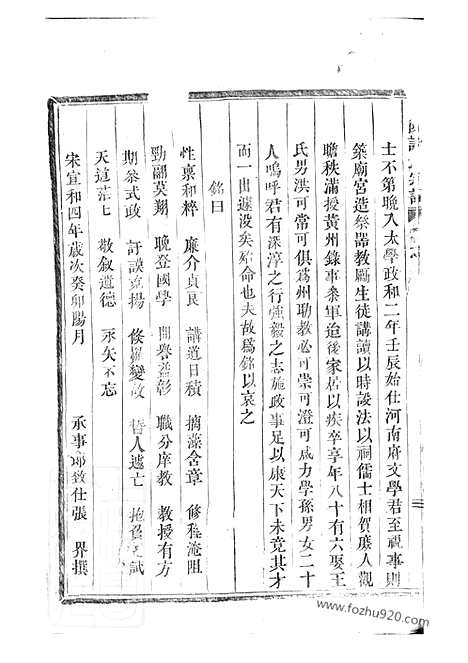 士不第晚入太學政和二年壬辰始仕河南府文學君至視事則
築廟宮造祭器教勵生徒講讀以時設法以祠儒士相賀廢人觀
瞻秩滿授黃州錄事叅軍迨後家居以疾卒享年八十有六娶王
氏男洪可常可俱爲州助教必可崇可澄可咸力學孫男女二十
人嗚呼君有深淳之行強毅之志施政事足以康天下未竟其才
而一出遽没矣殆命也夫故爲銘以哀之
銘曰
性稟和粹 廉介貞良 講道日積 摛藻含章 修程淹阻
勁翮莫翔 晚登國學 聞譽益彰 職分庠教 教授有方
期叅式政 訏謨 揚 倐 變故 哲人遽亡 抱 試
天道茫七 敬叙道德 永矢不忘
宋宣和四年歲次癸卯陽月
承事郎致仕張 界撰
www.fozhu920.com